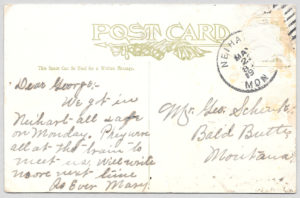 POST CARD
This Space Can Be Used for a Written Message.
NEIHA
MON
Dear George:-
We got in
Neihart all safe
on Monday.
all at the train to
meet us. Will write
more next time
As Ever Mary.
Mr. Geo. Schenk
Bald Butte
Montana.